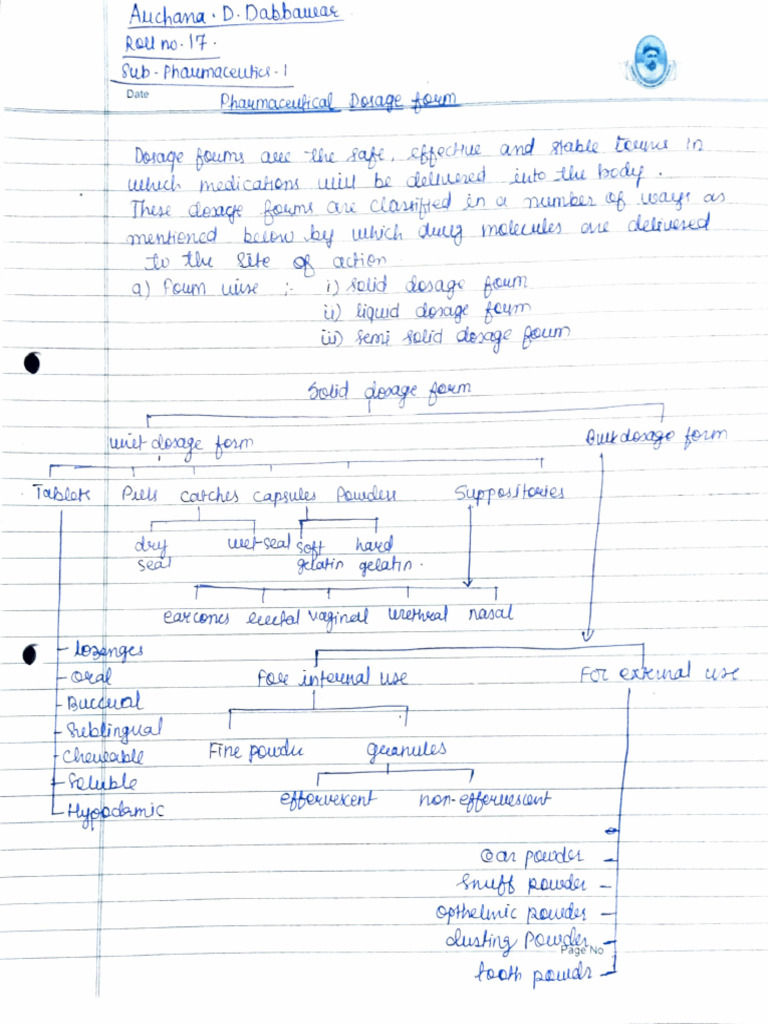 Archana . D. Dabbawar
Roll no. 17.
Sub - Pharmaceutics - 1
Date
Pharmaceutical Dosage form
Dosage forms are the safe, effective and stable forms in
which medications will be delivered into the body.
These dosage forms are classified in a number of ways as
mentioned below by which drug molecules are delivered
to the site of action
a) Form wise :- i) solid dosage form
ii) liquid dosage form
iii) semi solid dosage form
Solid dosage form
unit dosage form Bulk dosage form
Tablets Pills catches capsules Powders Suppositories
dry wet-seal soft hard
seal gelatin gelatin.
earcones rectal vaginal urethral nasal
- Lozenges
For internal use For external use
- Oral
- Buccual
- Sublingual
Fine powder granules
- Cheweable
- Soluble
effervescent non-effervescent
- Hypodermic
Ear powder -
Snuff powder -
Opthelmic powder -
dusting Powder -
Page No
tooth powdr -